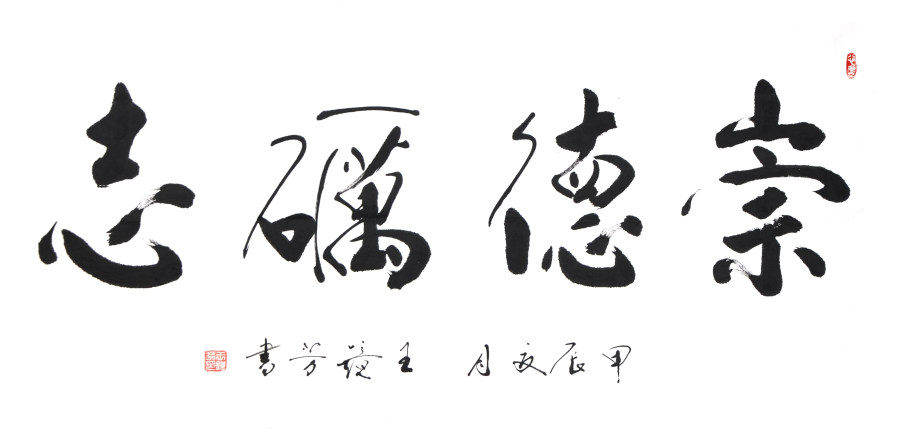 崇德礪志
甲辰夏月 王芳書